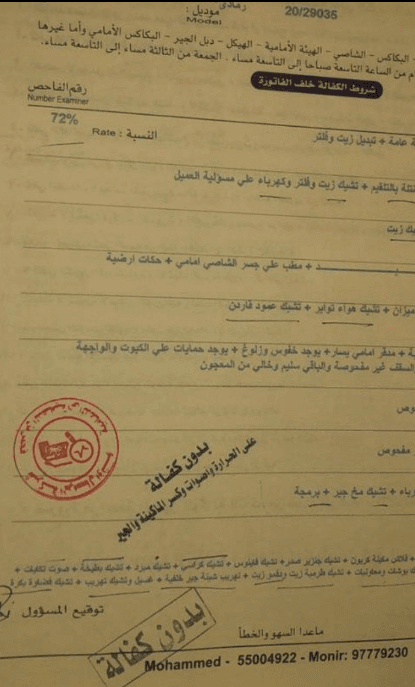 رمادي
20/29035
موديل :
Model
البكاكس - الشاصي - الهيئة الأمامية - الهيكل - دبل الجير - البكاكس الأمامي وأما غيرها
م من الساعة التاسعة صباحا إلى التاسعة مساء . الجمعة من الثالثة مساء إلى التاسعة مساء.
شروط الكفالة خلف الفاتورة
رقم الفاحص
Number Examiner
72%
النسبة : Rate
ة عامة + تبديل زيت وفلتر
بالتلقيم + تشيك زيت وفلتر وكهرباء علي مسؤلية العميل
يك زيت
د + مطب علي جسر الشاصي امامي + حكات ارضية
ميزان + تشيك هواء تواير + تشيك عمود فاردن
ة + مدقر امامي يسار + يوجد خفوس وزلوغ + يوجد حمايات علي الكبوت والواجهة
السقف غير مفحوصة والباقي سليم وخالي من المعجون
وص
مفحوص
بدون كفالة
على الحرارة وأصوات وكسر الماكينة والجير
رباء + تشيك مخ جير + برمجة
+ فلاش مكينة كربون + تشيك جنزير صدر + تشيك فاينوس + تشيك كراسي + تشيك مبرد + تشيك بطيخة + صوت تكايات +
بوشات ومعاونيات + تشيك طرمبة زيت ودقمو زيت + تهريب شينة جير خلفية + غسيل وتشيك تهريب + تشيك
توقيع المسؤول
بدون كفالة
ماعدا السهو والخطأ
Mohammed - 55004922 - Monir: 97779230